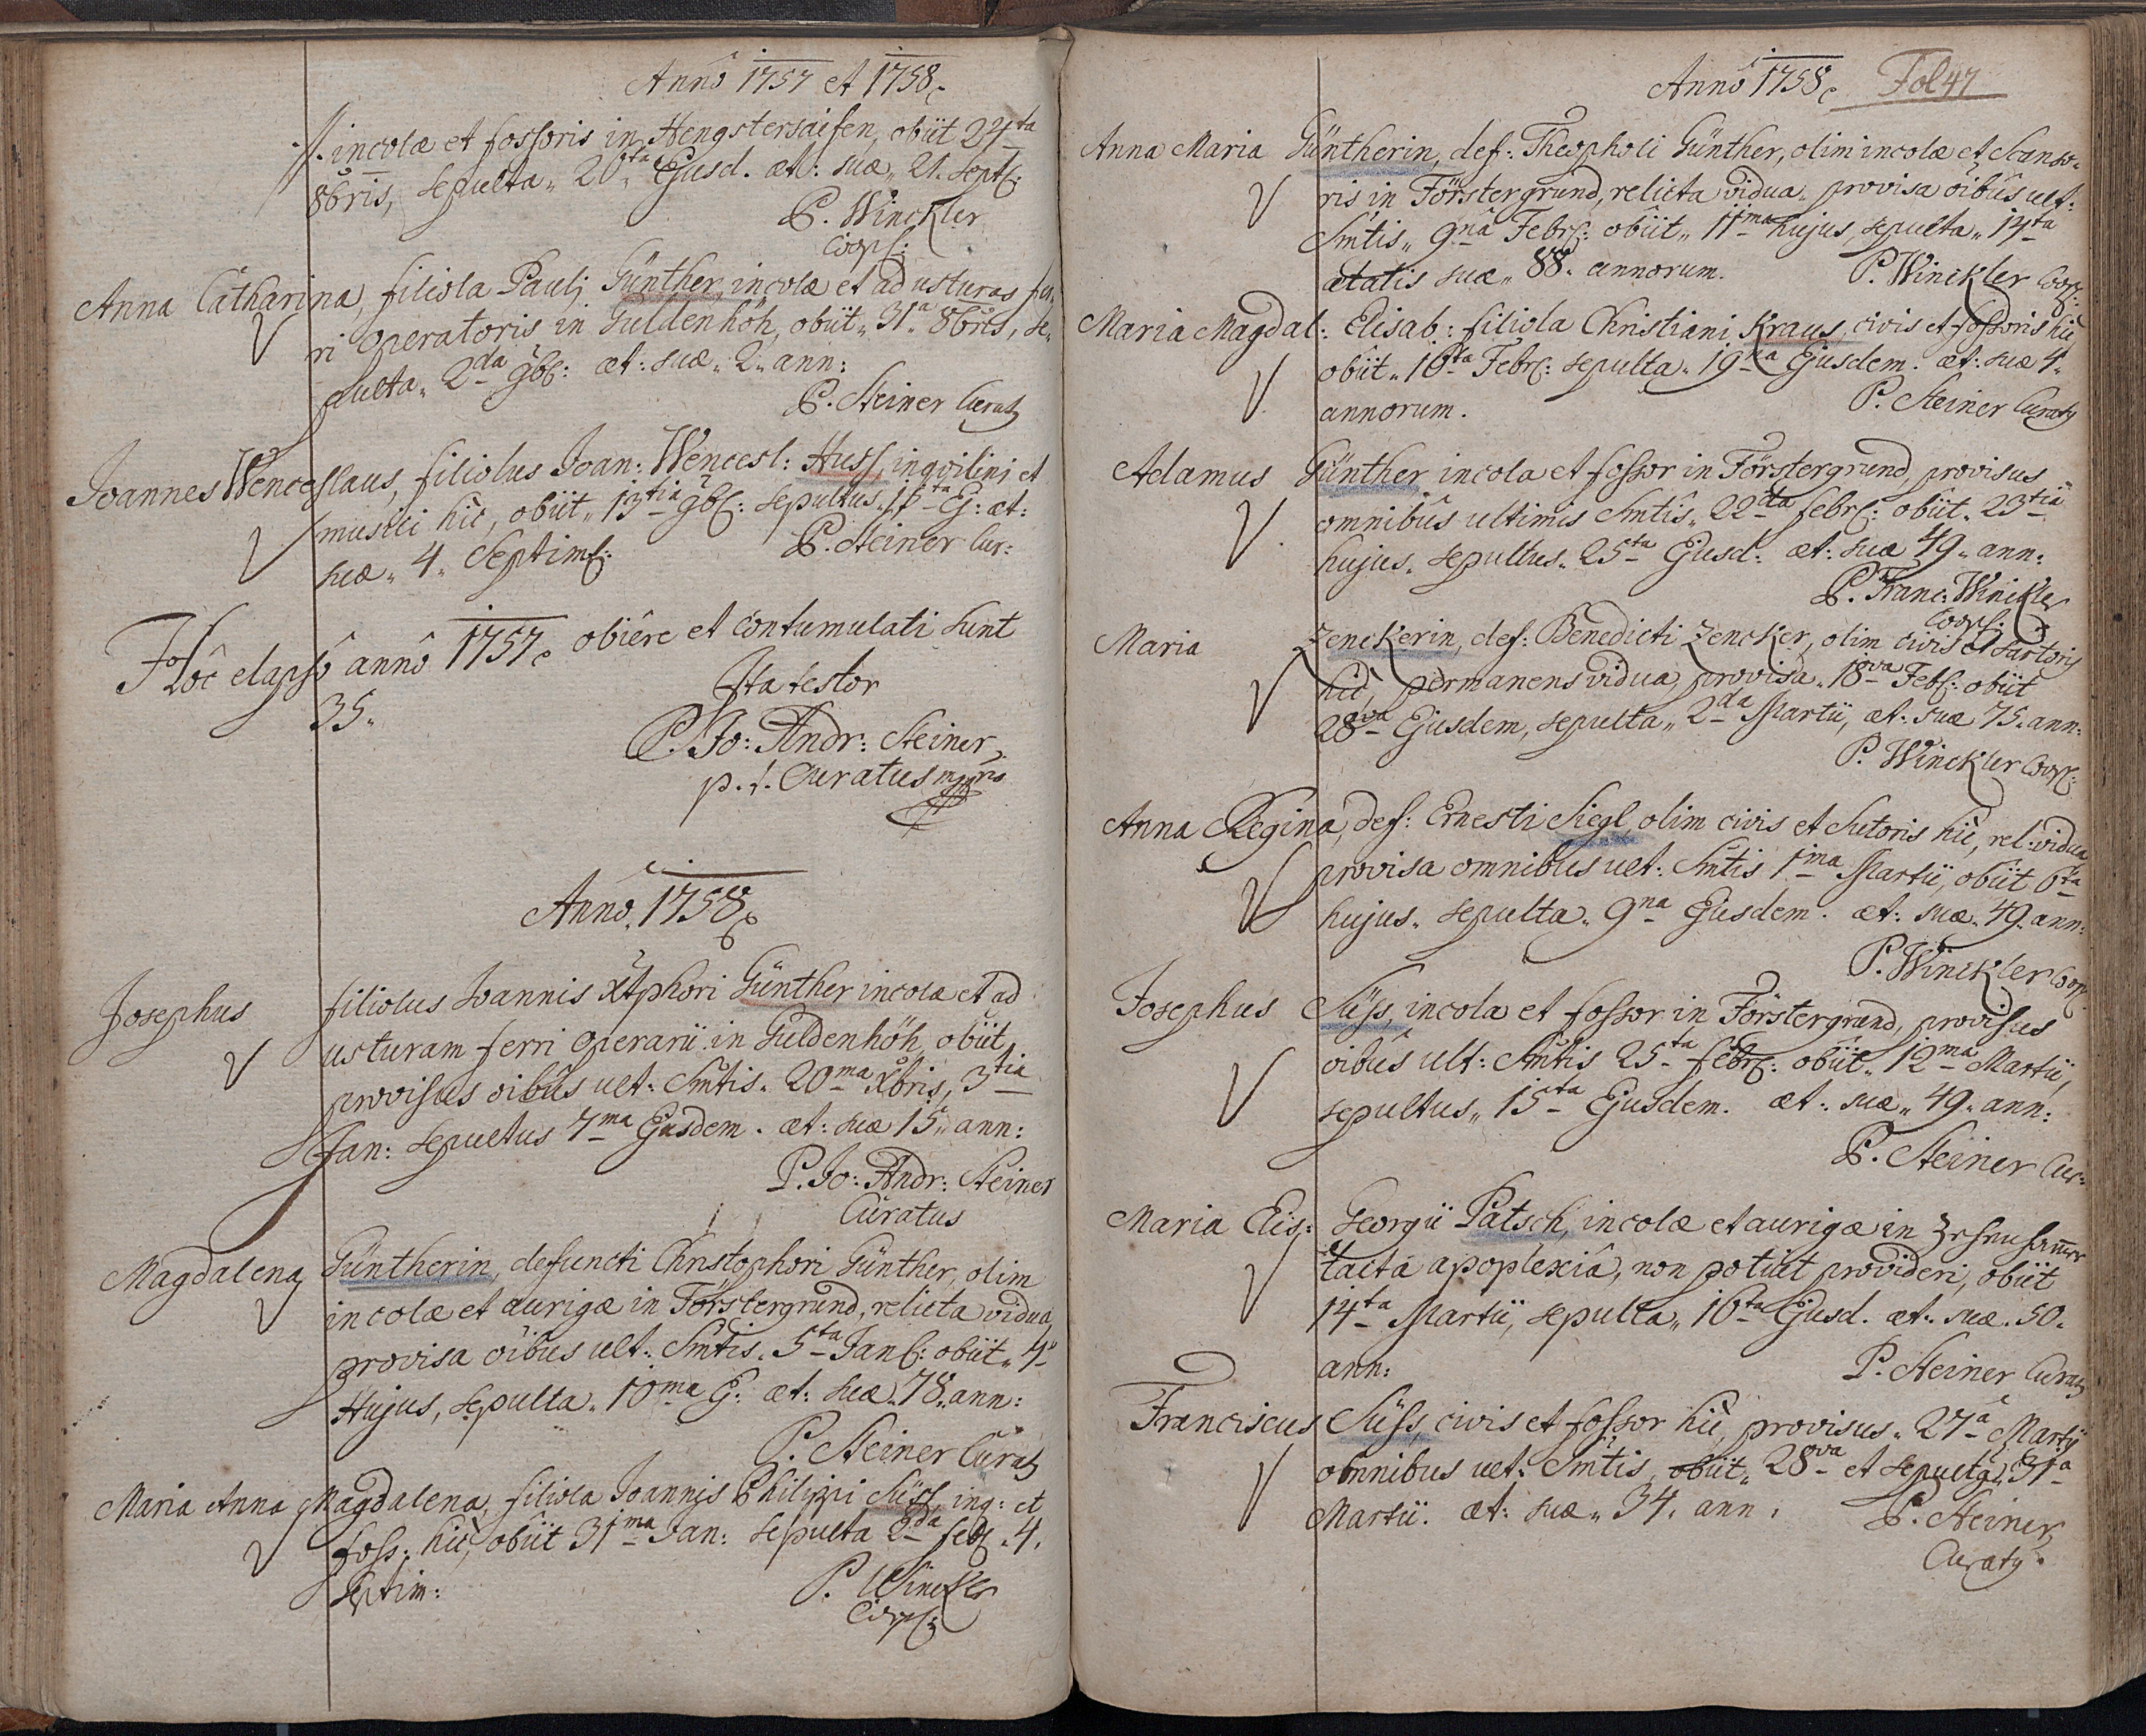 Annô 1757 et 1758
·/· incolæ et fossoris in Hengstersaifen, obiit 24ta
8bris, sepulta 26ta Ejusd. æt: suæ 21. Sept:
P. Winckler
Coop:
Anna Catharina, filiola Pauli Günther, incolæ et ad usturas fer-
ri operatoris in Güldenhöh, obiit 31a 8bris, se-
pulta 2da 9b: æt: suæ 2 ann:
P. Steiner Curat9
Joannes Wenceslaus, filiolus Joan: Wencesl: Huss, inqvilini et
musici hic, obiit 13tia 9b: sepultus 15ta E: æt:
suæ 4 Septim:
P. Steiner Cur:
Hoc elapsô annô 1757 obiêre et contumulati sunt
35.
Ita testor
P. Jo: Andr: Steiner
p. t. Curatus mppria
Annô 1758
Josephus filiolus Joannis Xtphori Günther incolæ et ad
usturam ferri operarii in Güldenhöh, obiit
provisus oibus ult: Smtis 20ma Xbris, 3tia
Jan: sepultus 7ma Ejusdem. æt: suæ 15 ann:
P. Jo: Andr: Steiner
Curatus
Magdalena Güntherin, defuncti Christophori Günther, olim
incolæ et aurigæ in Förstergrund, relicta vidua,
provisa oibus ult: Smtis 5ta Jan: obiit
Hujus, sepulta 10ma E: æt: suæ 78 ann:
P. Steiner Curat9
Maria Anna Magdalena, filiola Joannis Philippi Süss, inq: et
foss: hic, obiit 31ma Jan: sepulta 2da feb: 4.
Septim:
P. Winckler
Coop:
Annô 1758 Fol 47
Anna Maria Güntherin, def: Theopholi Günther, olim incolæ et Scanso-
ris in Förstergrund, relicta vidua provisa oibus ult:
Smtis 9na Febr: obiit 11ma hujus, sepulta 14ta
ætatis suæ 88. annorum.
P. Winckler Coop:
Maria Magdal: Elisab: filiola Christiani Kraus, civis et fossoris hic
obiit 16ta Febr: sepulta 19na Ejusdem. æt: suæ 4
annorum.
P. Steiner Curat9
Adamus Günther incola et fossor in Förstergrund, provisus
omnibus ultimis Smtis 22da febr: obiit 23tia
hujus, sepultus 25ta Ejusd: æt: suæ 49 ann:
P. Franc: Winckler
Coop:
Maria Zenckerin, def: Benedicti Zencker, olim civis et sartoris
hic, permanens vidua, provisa 18va Feb: obiit
28va Ejusdem, sepulta 2da Martii, æt: suæ 75. ann:
P. Winckler Coop:
Anna Regina, def: Ernesti Siegl, olim civis et Sutoris hic, rel: vidua
provisa omnibus ult: Smtis 1ma Martii, obiit 6ta
hujus, sepulta 9na Ejusdem. æt: suæ 49 ann:
P. Winckler Coop
Josephus Süss, incola et fossor in Förstergrund, provisus
oibus ult: Smtis 25ta febr: obiit 12ma Martii,
sepultus 15ta Ejusdem. æt: suæ 49 ann:
P. Steiner Cur:
Maria Elis: Georgii Patsch, incolæ et aurigæ in
tacta apoplexiâ, non potuit provideri, obiit
14ta Martii, sepulta 16ta Ejusd. æt: suæ 50
ann:
P. Steiner Curat9
Franciscus Süss, civis et fossor hic, provisus 27a Martij
omnibus ult: Smtis, obiit 28va et sepult9 31a
Martii. æt: suæ 34. ann:
P. Steiner
Curat9